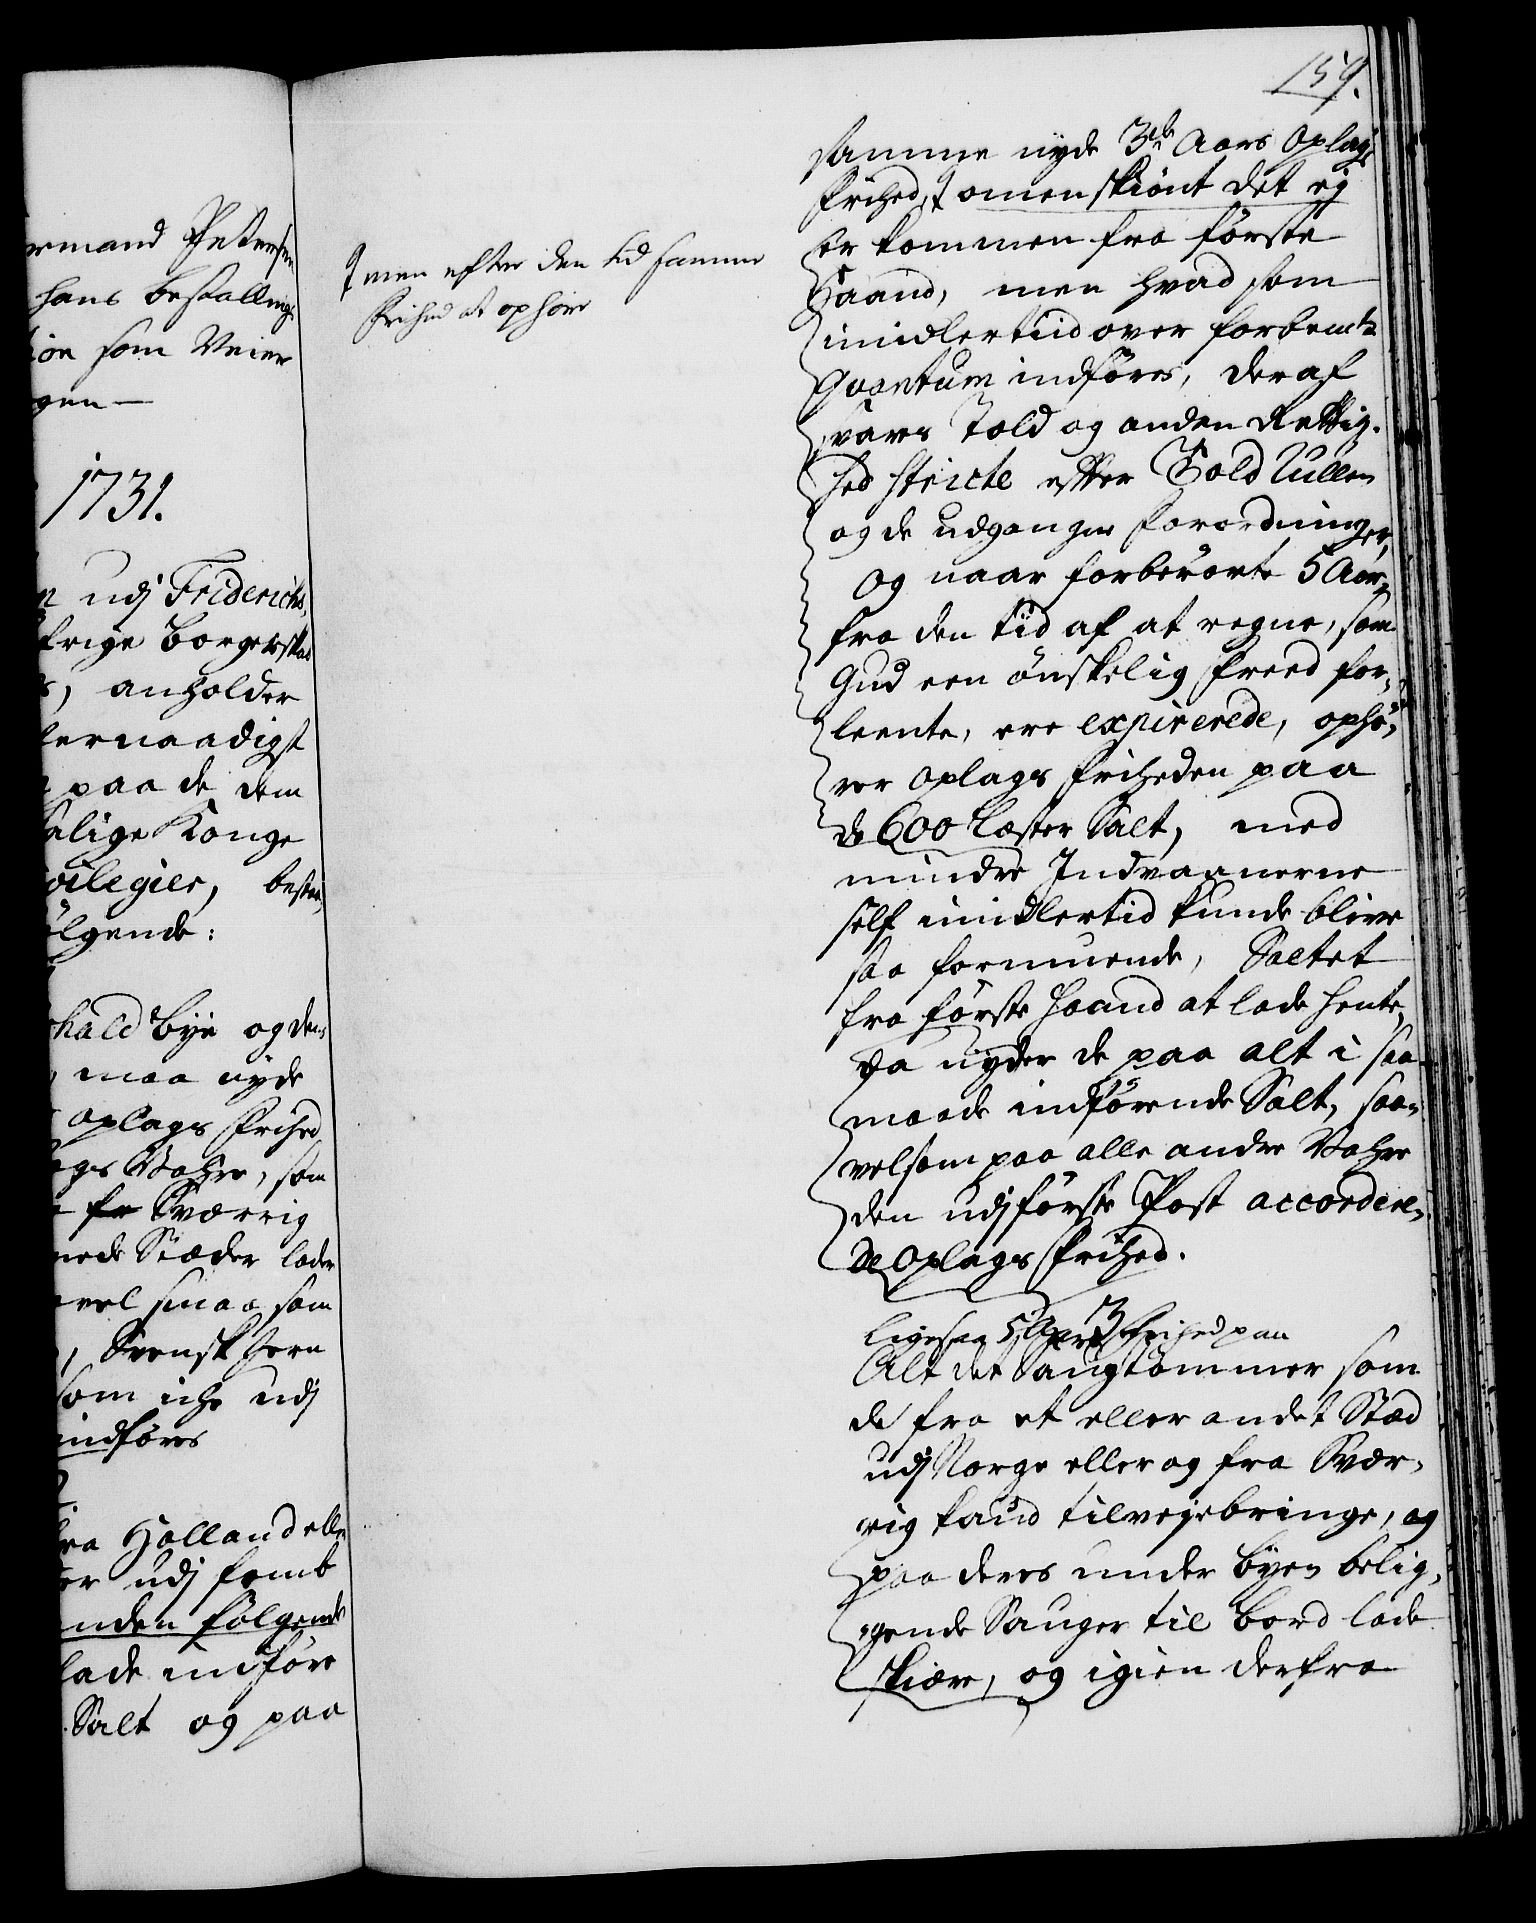 159.
ermand Petersen
hans bestallings
ion som Veier
gen —
1731.
udj Friderichs,
frige borgerskab
anholder
lernaadigst
paa de dem
Salige Konge
vilegier, bestaa,
ølgende:
hald bye og dens
maa nyde
oplags frihed
ags Wahre, som
fr Sværrig
nede Stæder lader
vel smaa som
, Svensk Jern
som icke udj
indføres
fra Holland eller
er udj femb
nden følgende
lade indføre
Salt og paa
ꝉ men efter den tid samme
frihed at ophøre
samme nyde 3de Aars oplags
frihed, ꝉ omenskiønt det ej
er kommen fra første
Haand, men hvad som
imidlertiid over forbemte
qvantum indføres, deraf
svares Told og anden Rettig,
hed stricte efter Told Rullen
og de udgangne forordninger,
og naar forberørte 5 Aar,
fra den tid af at regne, som
Gud een ønskelig freed for,
leente, ere expirerede, ophø,
rer oplags friheden paa
de 600 Læster Salt, med
mindre Indvaanerne
self imidlertid kunde blive
saa formuende, Saltet
fra første Haand at lade hente,
da nyder de paa alt i saa
maade indførende Salt, saa,
velsom paa alle andre Wahre
den udj første Post accordere,
de oplags frihed.
3
Ligesaa 5 Aars frihed paa
Alt det Saugtømmer som
de fra et eller andet Stæd
udj Norge eller og fra Svær,
rig kand tilvejebringe, og
paa deres under byen belig,
gende Sauger til bord lade
skiære, og igien derfra